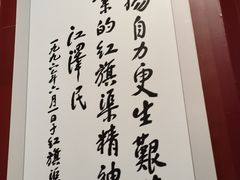 扬自力更生艱
的红旗渠精神
江澤民
一九九六年六月一日于红旗渠